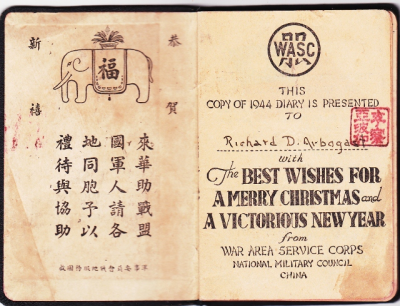 恭賀
新禧
福
來華助戰盟
國軍人請各
地同胞予以
禮待與協助
軍事委員會戰地服務團
WASC
THIS
COPY OF 1944 DIARY IS PRESENTED
TO
Richard D. Arbogast
with
The BEST WISHES FOR
A MERRY CHRISTMAS and
A VICTORIOUS NEW YEAR
from
WAR AREA SERVICE CORPS
NATIONAL MILITARY COUNCIL
CHINA